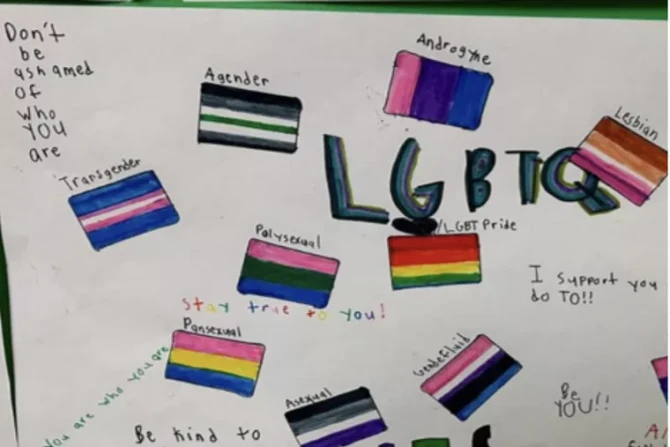 Don't
be
ashamed
of
who
YOU
are
Agender
Androgyne
Lesbian
Transgender
LGBTQ
Polysexual
/LGBT Pride
I support you
do TO!!
stay true to you!
Pansexual
Genderfluid
You are who you are
Asexual
Be
YOU!!
Be kind to